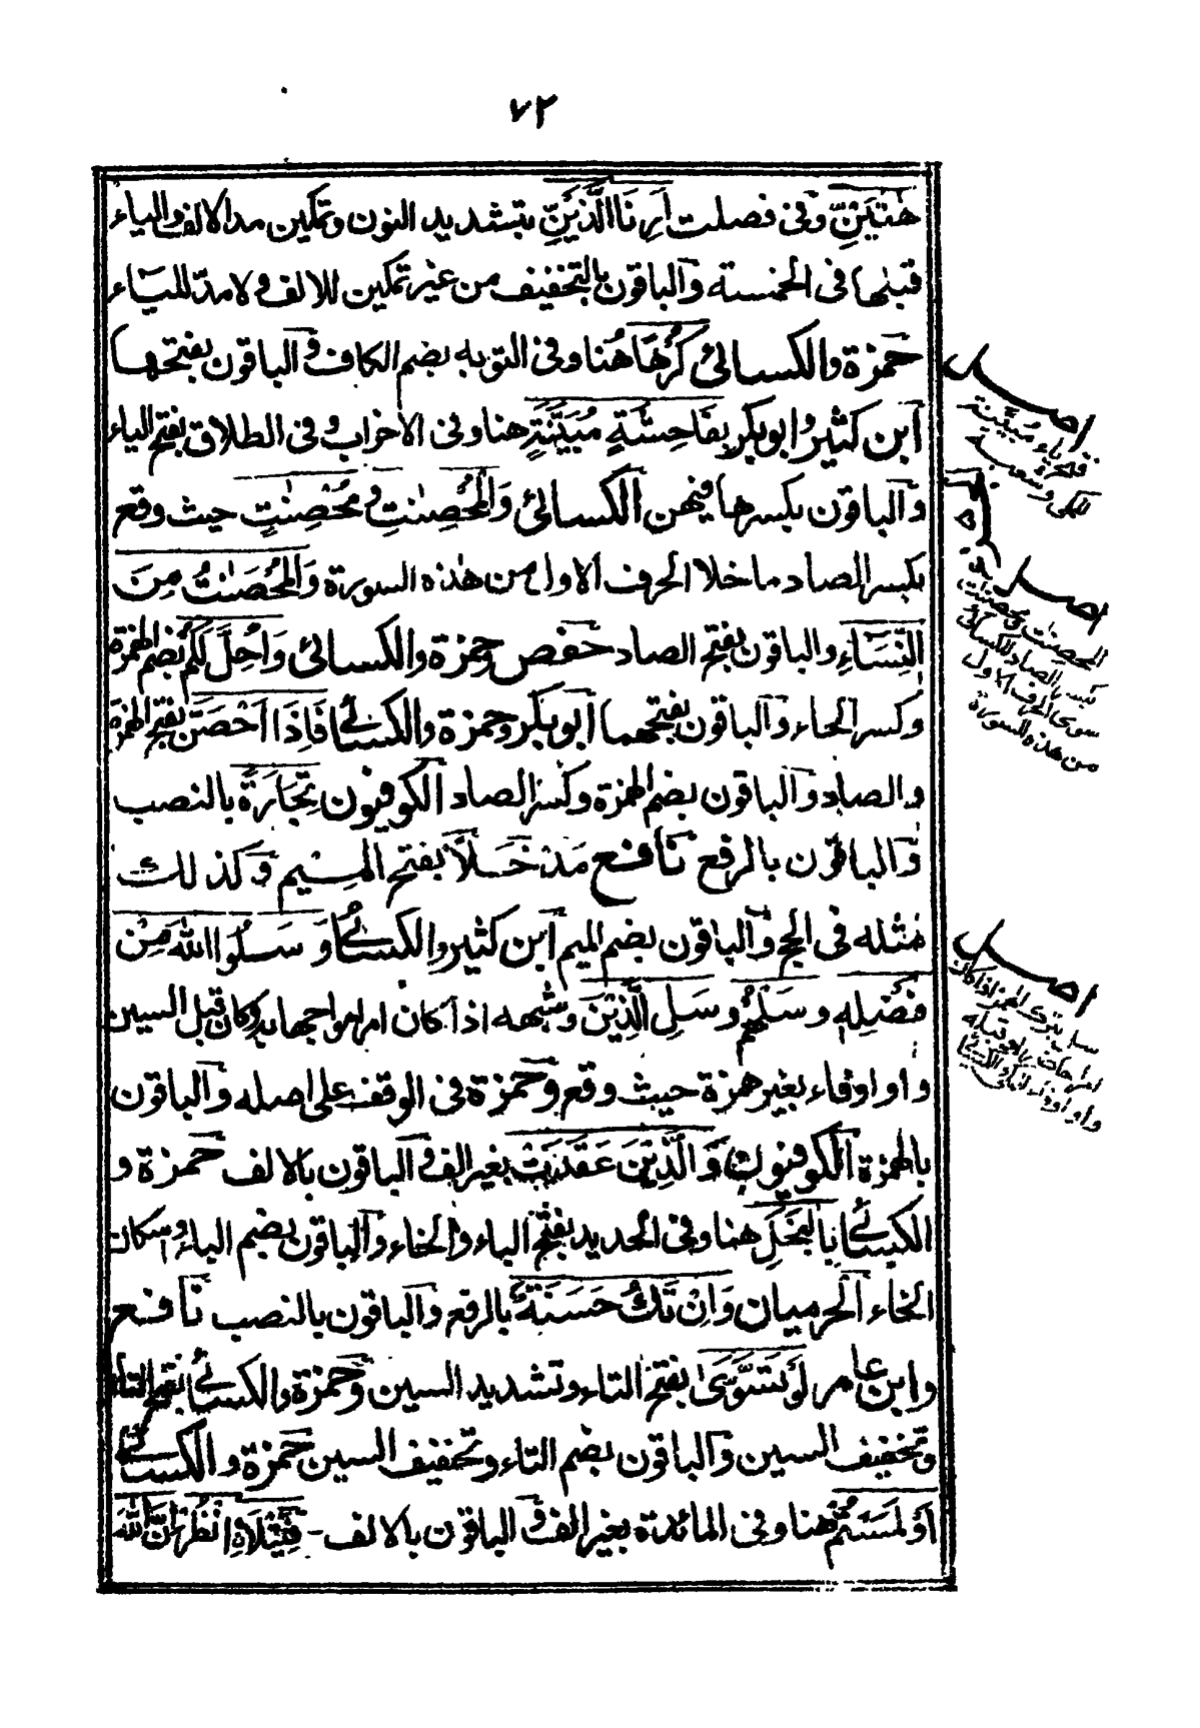 ٧٢
هٰتَيۡنِّ وفى فصلت اَرِنَا الَّذَيۡنِّ بتشديد النون وتمكين مد الالف والياء
قبلها فى الخمسة والباقون بالتخفيف من غير تمكين للالف ولا مدّ للياء
حمزة والكسائى كُرْهًا هُنا وفى التوبه بضم الكاف والباقون بفتحها
ابن كثير وابوبكر بِفَاحِشَةٍ مُبَيَّنَةٍ هنا وفى الاحزاب وفى الطلاق بفتح الياء
والباقون بكسرها فيهن الكسائى وَالْمُحْصِنٰتِ و مُحْصِنٰتٍ حيث وقع
بكسر الصاد ماخلا الحرف الاول من هذه السورة وَالْمُحْصَنٰتُ مِنَ
النِّسَاءِ والباقون بفتح الصاد حفص وحمزة والكسائى وَاُحِلَّ لَكُمْ بضم الهمزة
وكسر الحاء والباقون بفتحهما ابوبكر وحمزة والكسائى فَاِذَا اَحْصَنَّ بفتح الهمزة
والصاد والباقون بضم الهمزة وكسر الصاد الكوفيون تِجَارَةً بالنصب
والباقون بالرفع نافع مَدْخَلًا بفتح الميم وكذلك
مثله فى الحج والباقون بضم الميم ابن كثير والكسائى وَسَلُوا اللّٰهَ مِنْ
فَضْلِهٖ وسَلْهُمْ وسَلِ الَّذِيْنَ وشبهه اذا كان امرا مواجها به وكان قبل السين
واو اوفاء بغير همزة حيث وقع وحمزة فى الوقف على اصله والباقون
بالهمزة الكوفيون وَالَّذِيْنَ عَقَدَتْ بغير الف والباقون بالالف حمزة و
الكسائى بِالْبَخَلِ هنا وفى الحديد بفتح الباء والخاء والباقون بضم الباء واسكان
الخاء الحرميان وَاِنْ تَكُ حَسَنَةٌ بالرفع والباقون بالنصب نافع
وابن عامر لَوْ تَسَّوّٰى بفتح التاء وتشديد السين وحمزة والكسائى بفتح التاء
وتخفيف السين والباقون بضم التاء وتخفيف السين حمزة والكسائى
اَوْ لَمَسْتُمْ هنا وفى المائدة بغير الف والباقون بالالف - فَتِيْلًا انْظُرْ اِنَّ اللّٰهَ
اصل
ياء مُبَيَّنَة
اصل
المحصنٰت ومحصنٰت
بكسر الصاد للكسائى
سوى الحرف الاول
من هذه السورة
اصل